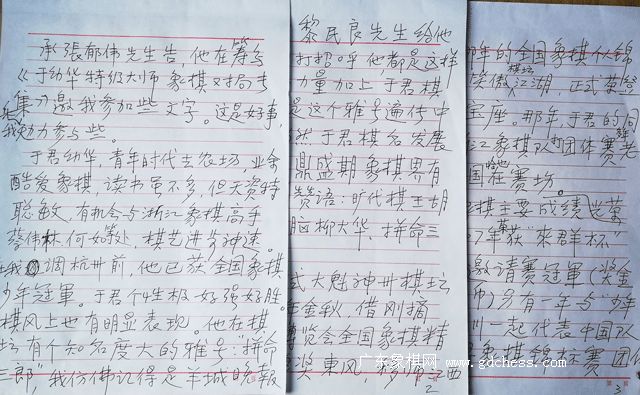 承張郁伟先生告，他在筹与
《于幼华特级大师象棋对局专
集》邀我参加些文字。这是好事，
我动力参与些。
于君幼华，青年时代去农场，业余
酷爱象棋，读书虽不多，但天资特
聪敏，有机会与浙江象棋高手
蔡伟林、何如等处，棋艺进步神速。
我调杭州前，他已获全国象棋
少年冠軍。于君个性极好强好胜，
棋风上也有明显表现。他在棋
坛有个知名度大的雅号："拼命
三郎"，我仿佛记得是羊城晚報
黎民良先生给他
打招呼他，都是这样
力量加上于君棋
是这个雅号遍传中
然于君棋名发展
鼎盛期象棋界有
赞语：旷代棋王胡
脑柳大华，拼命三
式大魁神州棋坛
年金秋，借刚摘
博览会全国象棋精
奖東风，
2
年的全国象棋个人锦
笑傲棋坛江湖，正式荣登
宝座。那年于君的同
江象棋队团体赛
国在赛场。
棋主要成绩
7年获"来群杯"
邀请赛冠軍（奖金
币）另有一年与少年
川一起代表中国队
象棋锦标赛团体
3
广东象棋网 www.gdchess.com